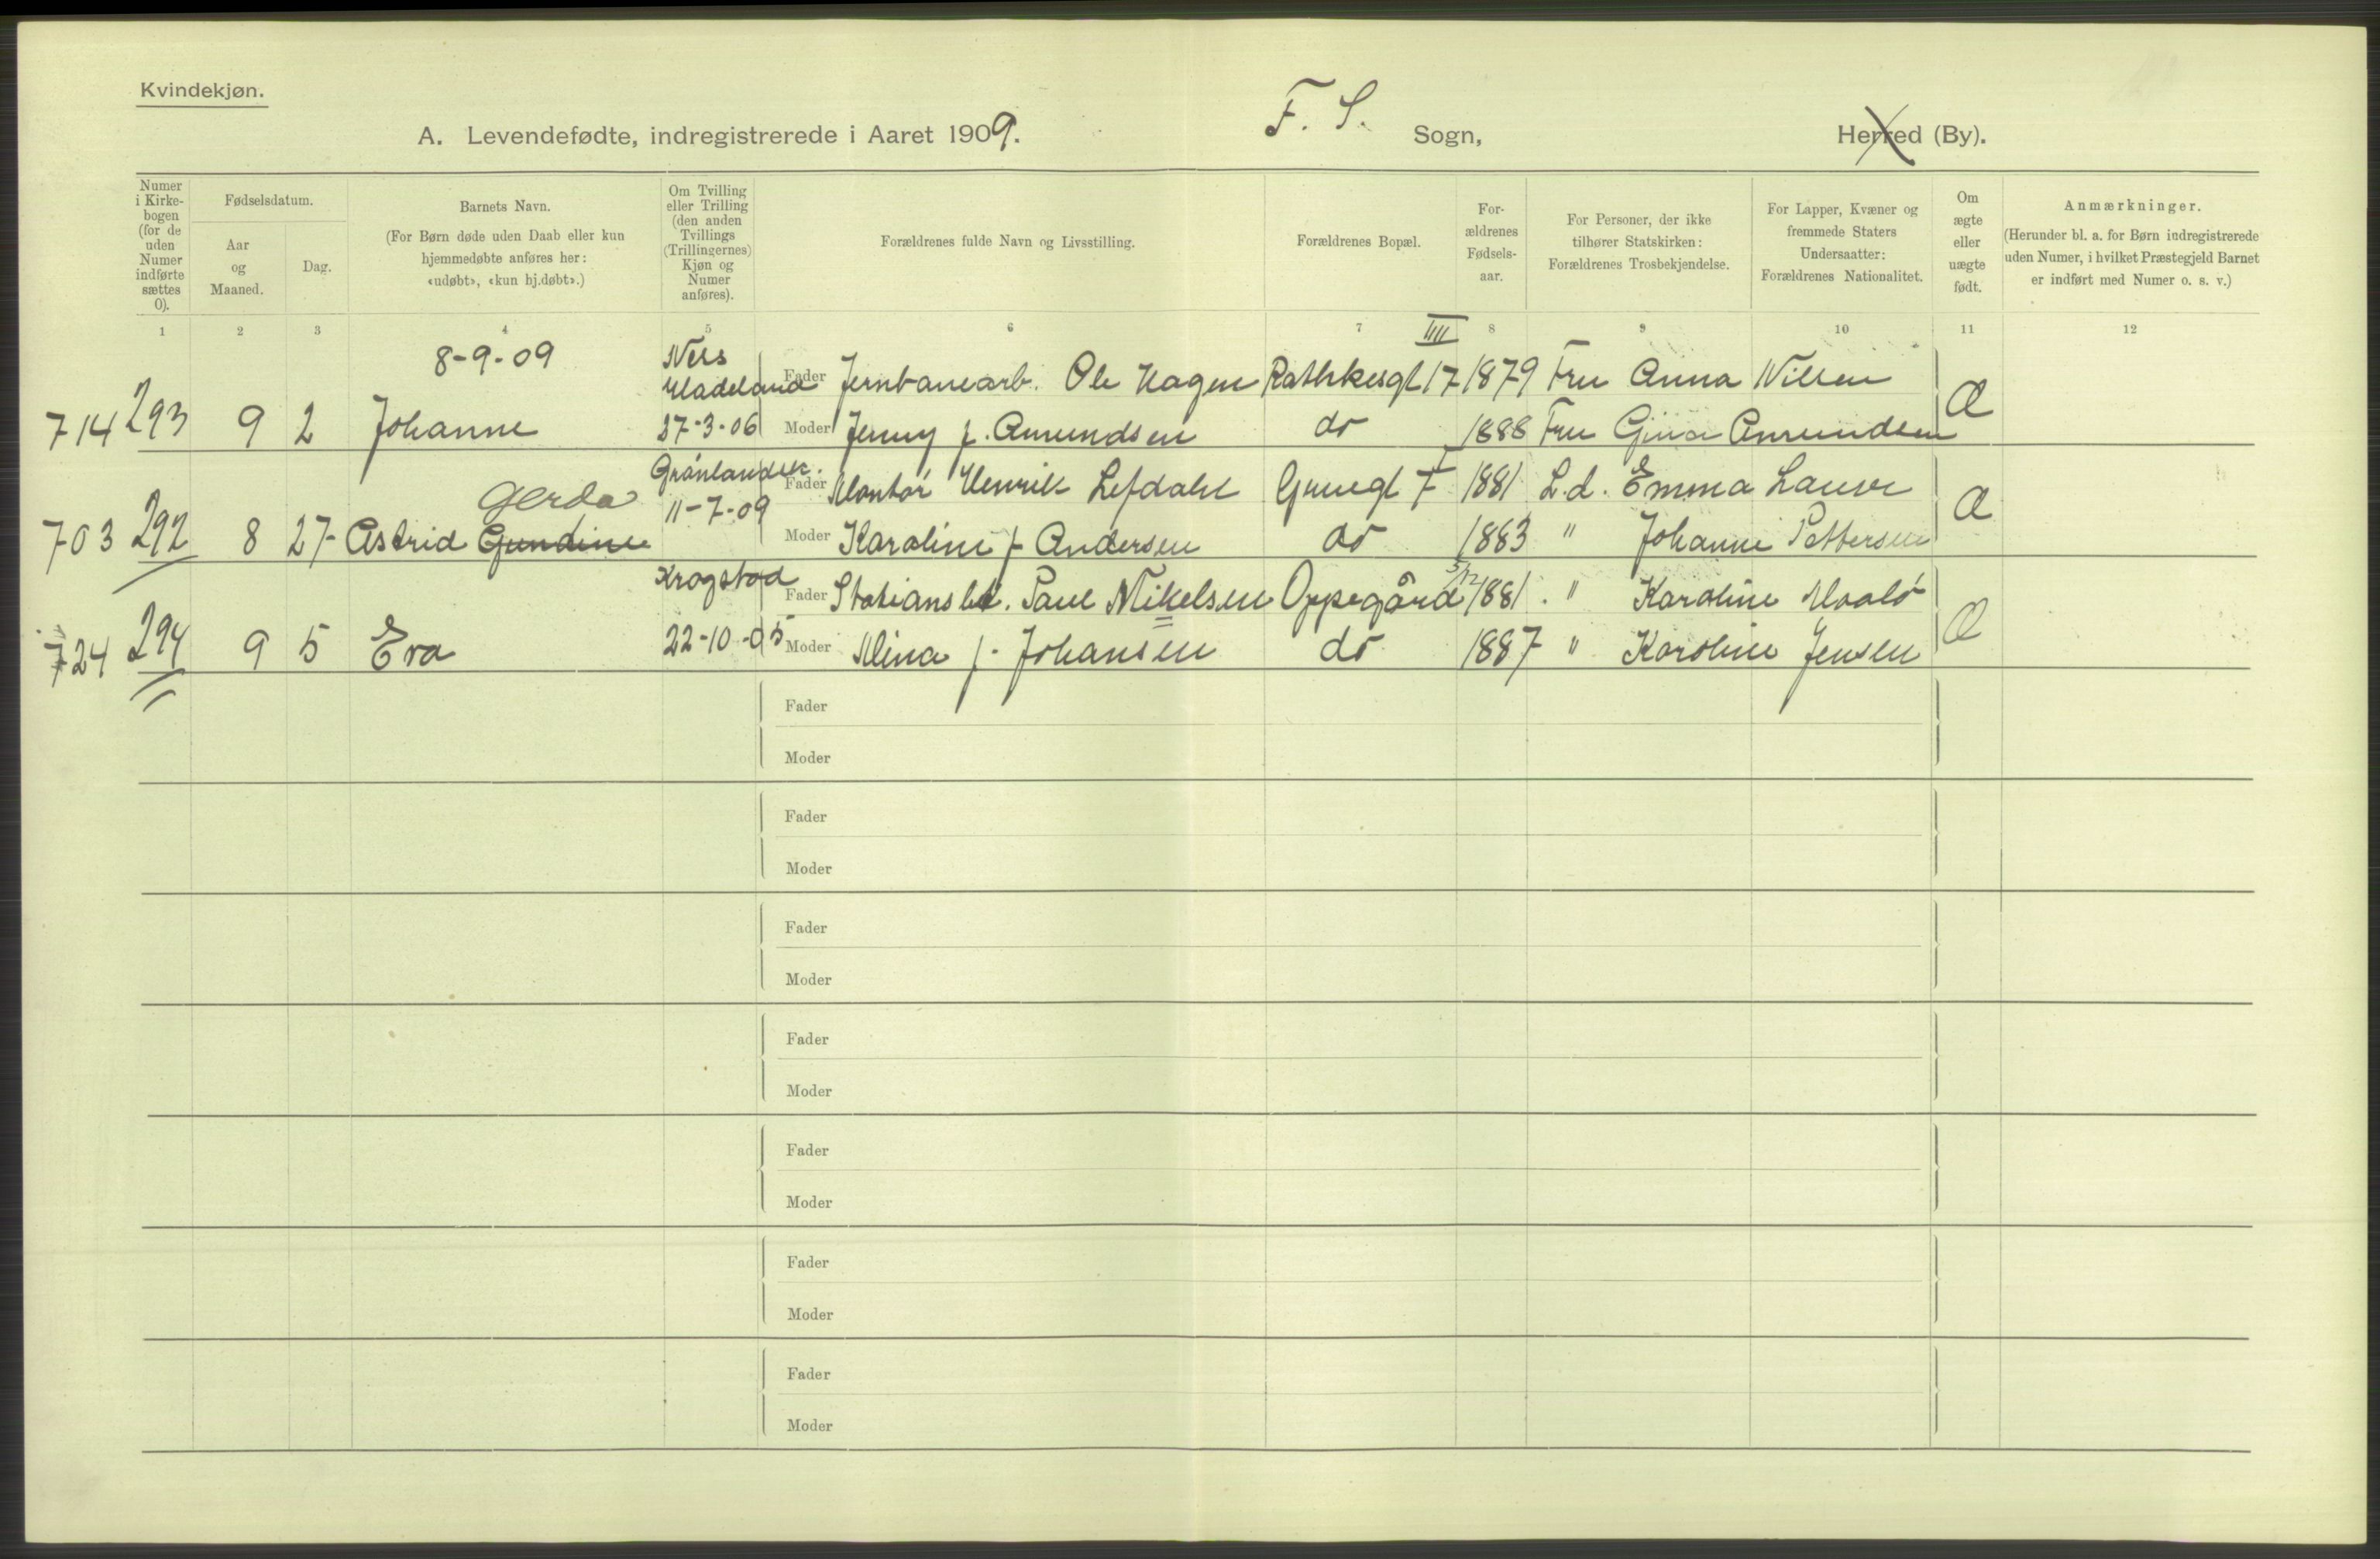 Kvindekjøn.
A. Levendefødte, indregistrerede i Aaret 1909.
F. S. Sogn,
Herred (By).
Numer i Kirkebogen (for de uden Numer indførte sættes 0).
Fødselsdatum.
Aar og Maaned.
Dag.
Barnets Navn.
(For Børn døde uden Daab eller kun
hjemmedøbte anføres her:
«udøbt», «kun hj.døbt».)
Om Tvilling
eller Trilling
(den anden
Tvillings
(Trillingernes)
Kjøn og
Numer
anføres).
Forældrenes fulde Navn og Livsstilling.
Forældrenes Bopæl.
For-
ældrenes
Fødsels-
aar.
For Personer, der ikke
tilhører Statskirken:
Forældrenes Trosbekjendelse.
For Lapper, Kvæner og
fremmede Staters
Undersaatter:
Forældrenes Nationalitet.
Om
ægte
eller
uægte
født.
Anmærkninger.
(Herunder bl. a. for Børn indregistrerede
uden Numer, i hvilket Præstegjeld Barnet
er indført med Numer o. s. v.)
1 2 3 4 5 6 7 8 9 10 11 12
8-9-09
Nes
Hadeland
Fader Jernbanearb. Ole Hagen Rathkesgt 17 1879 Fru Anna Nilsen
714 293 9 2 Johanne 27-3-06 Moder Jenny f. Amundsen do 1888 Fru Gina Amundsen Æ
Grønlandsk.
Gerda
Fader Kontor Henrik Lefdahl 1881 L.d. Emma
11-7-09
703 292 8 27 Astrid Gundine Moder Karoline f Andersen do 1883 " Johanne Pettersen Æ
Krogstad
Fader Paul Mikelsen Oppegård 1881 " Karoline
724 294 9 5 Eva 22-10-05 Moder Klina f. Johansen do 1887 " Karoline Jensen Æ
Fader
Moder
Fader
Moder
Fader
Moder
Fader
Moder
Fader
Moder
Fader
Moder
Fader
Moder